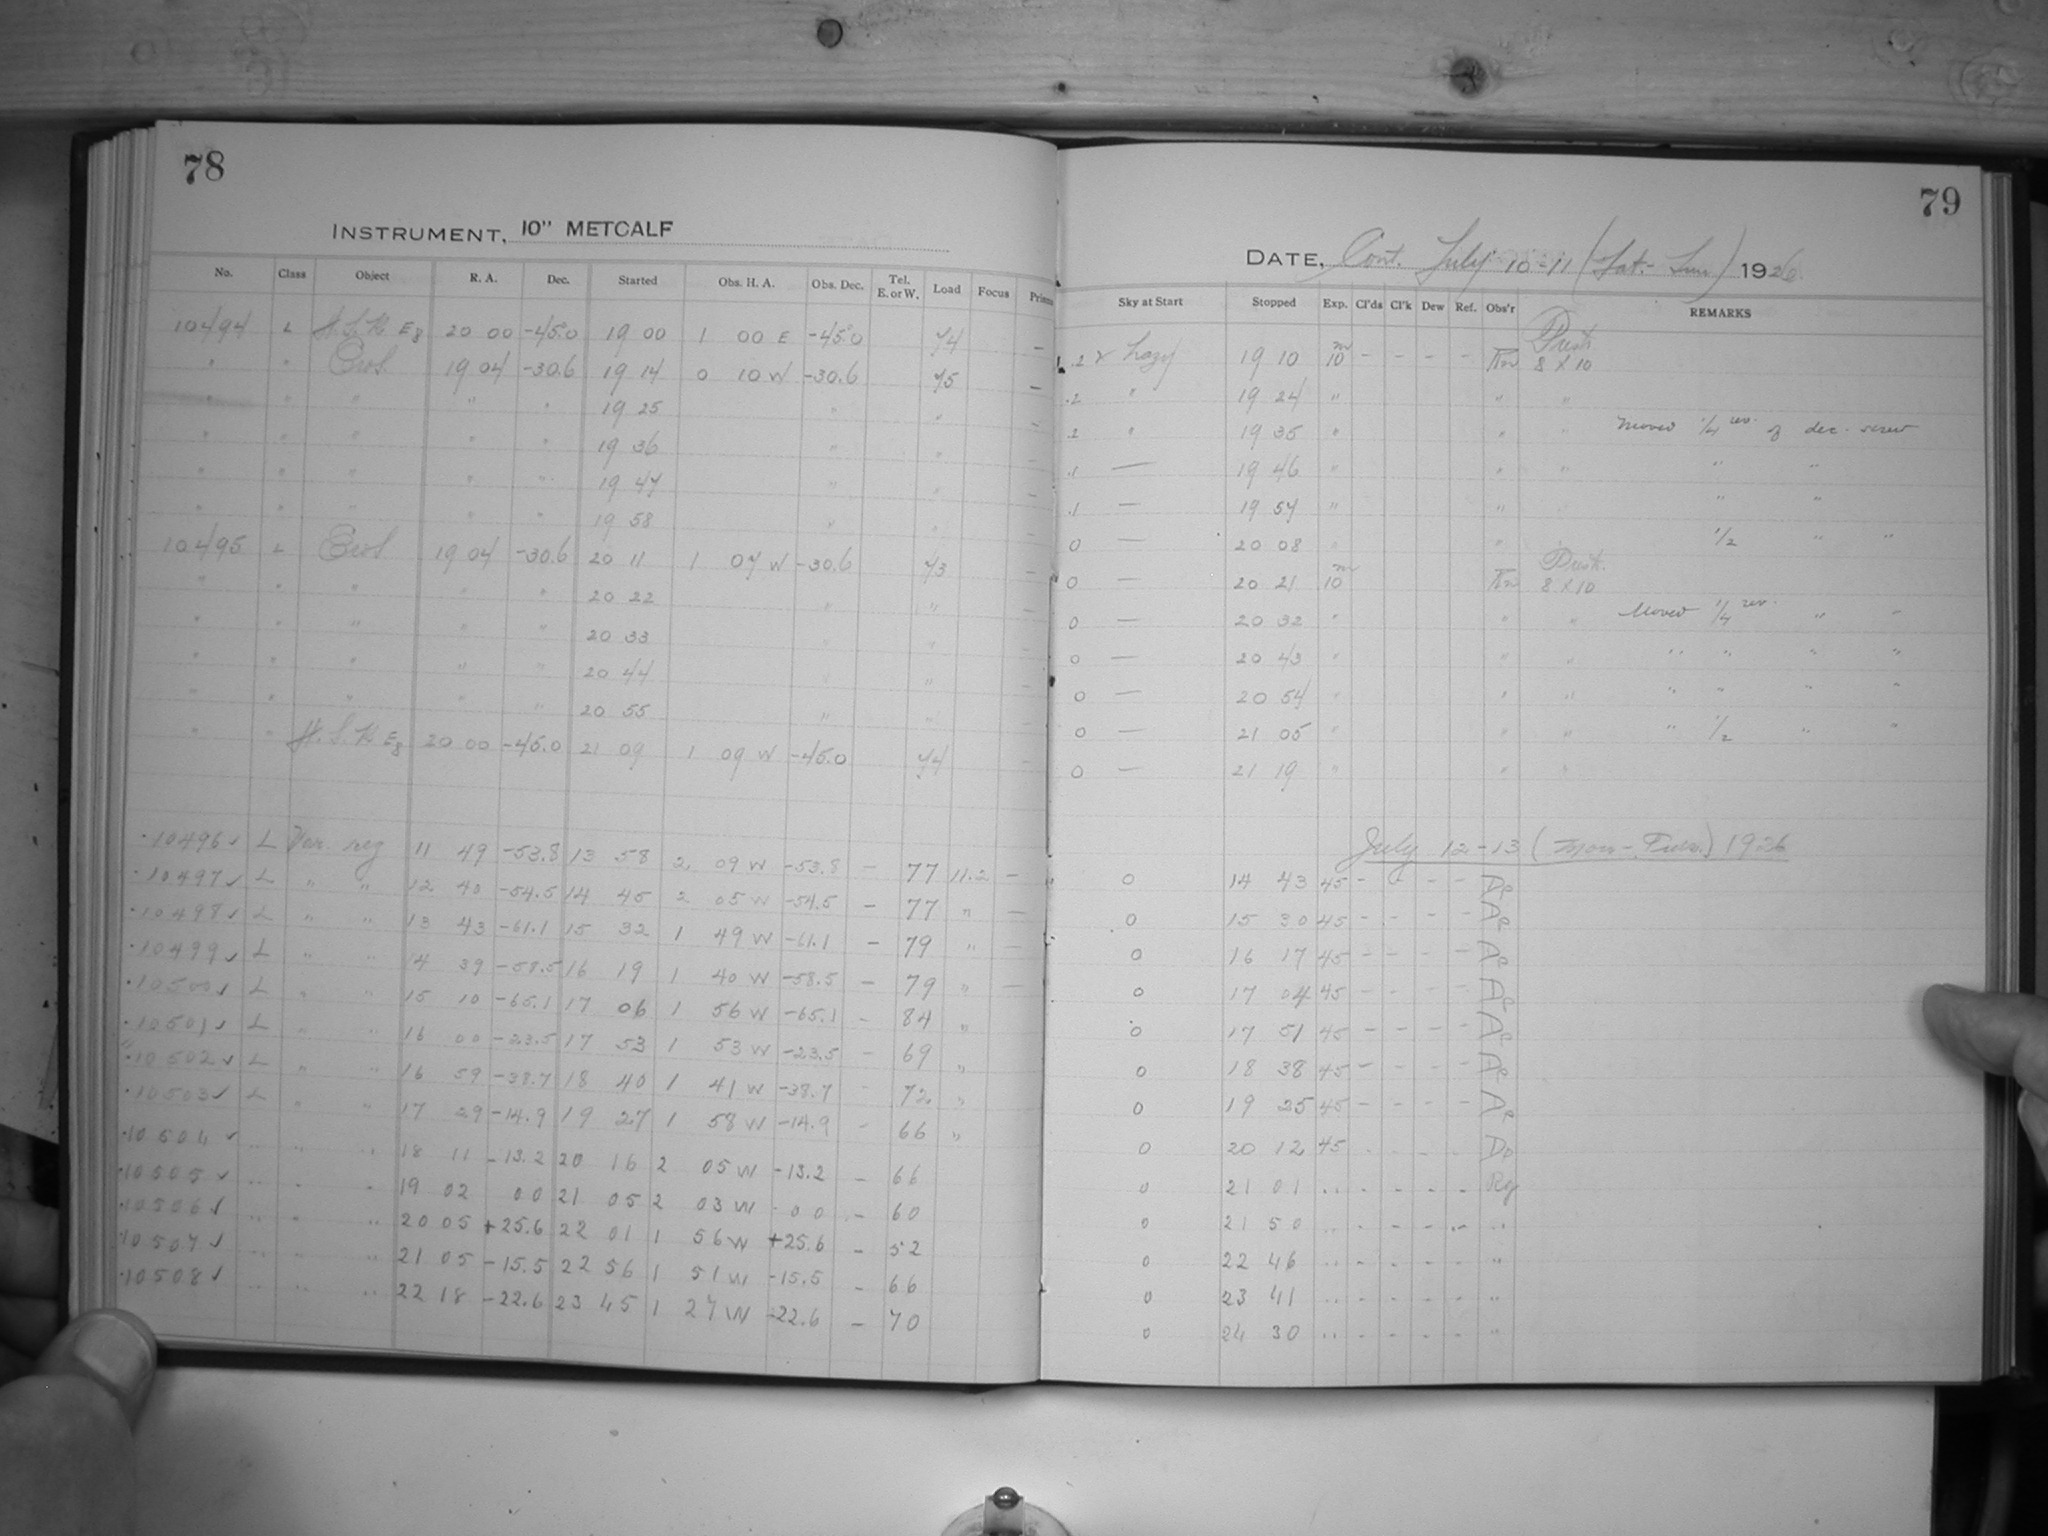 78
INSTRUMENT, 10" METCALF
No. Class Object R. A. Dec. Started Obs. H. A. Obs. Dec. Tel. E. or W. Load Focus
10494 L H.S.K E8 20 00 -45.0 19 00 1 00 E -45.0 74 -
" " Eros 19 04 -30.6 19 14 0 10 W -30.6 75 -
" " " " " 19 25 " " -
" " " " " 19 36 " " -
" " " " " 19 47 " " -
" " " " " 19 58 " " -
10495 L Eros 19 04 -30.6 20 11 1 07 W -30.6 73 -
" " " " " 20 22 " " -
" " " " " 20 33 " " -
" " " " " 20 44 " " -
" " " " " 20 55 " " -
" " H.S.K E8 20 00 -45.0 21 09 1 09 W -45.0 74 -
10496 ✓ L Var. reg 11 49 -53.8 13 58 2 09 W -53.8 - 77 11.2 -
10497 ✓ L " " 12 40 -54.5 14 45 2 05 W -54.5 - 77 " -
10498 ✓ L " " 13 43 -61.1 15 32 1 49 W -61.1 - 79 " -
10499 ✓ L " " 14 39 -58.5 16 19 1 40 W -58.5 - 79 " -
10500 ✓ L " " 15 10 -65.1 17 06 1 56 W -65.1 - 84 "
10501 ✓ L " " 16 00 -23.5 17 53 1 53 W -23.5 - 69 "
10502 ✓ L " " 16 59 -38.7 18 40 1 41 W -38.7 - 72 "
10503 ✓ L " " 17 29 -14.9 19 27 1 58 W -14.9 - 66 "
10504 ✓ " " " 18 11 -13.2 20 16 2 05 W -13.2 - 66
10505 ✓ " " " 19 02 00 21 05 2 03 W 00 - 60
10506 ✓ " " " 20 05 +25.6 22 01 1 56 W +25.6 - 52
10507 ✓ " " " 21 05 -15.5 22 56 1 51 W -15.5 - 66
10508 ✓ " " " 22 18 -22.6 23 45 1 27 W -22.6 - 70
79
DATE, Cont. July 10-11 (Sat.-Sun) 1926
Sky at Start Stopped Exp. Cl'ds Cl'k Dew Ref. Obs'r REMARKS
.2 & hazy 19 10 10m - - - - 8 x 10
.2 " 19 24 " " "
.2 " 19 35 " " " Moved 1/4 rev. of dec. screw
.1 — 19 46 " " " " "
.1 — 19 57 " " " "
0 — 20 08 " " 1/2 " "
0 — 20 21 10m 8 x 10
0 — 20 32 " " " Moved 1/4 rev. " "
0 — 20 43 " " " " " " "
0 — 20 54 " " " " " " "
0 — 21 05 " " " " 1/2 " "
0 — 21 19 " " "
July 12-13 (Mon-Tues.) 1926
0 14 43 45 - - - -
0 15 30 45 - - - -
0 16 17 45 - - - -
0 17 04 45 - - - -
0 17 51 45 - - - -
0 18 38 45 - - - -
0 19 25 45 - - - -
0 20 12 45 - - - -
0 21 01 " - - - - Rg
0 21 50 " - - - - "
0 22 46 " - - - - "
0 23 41 " - - - - "
0 24 30 " - - - - "